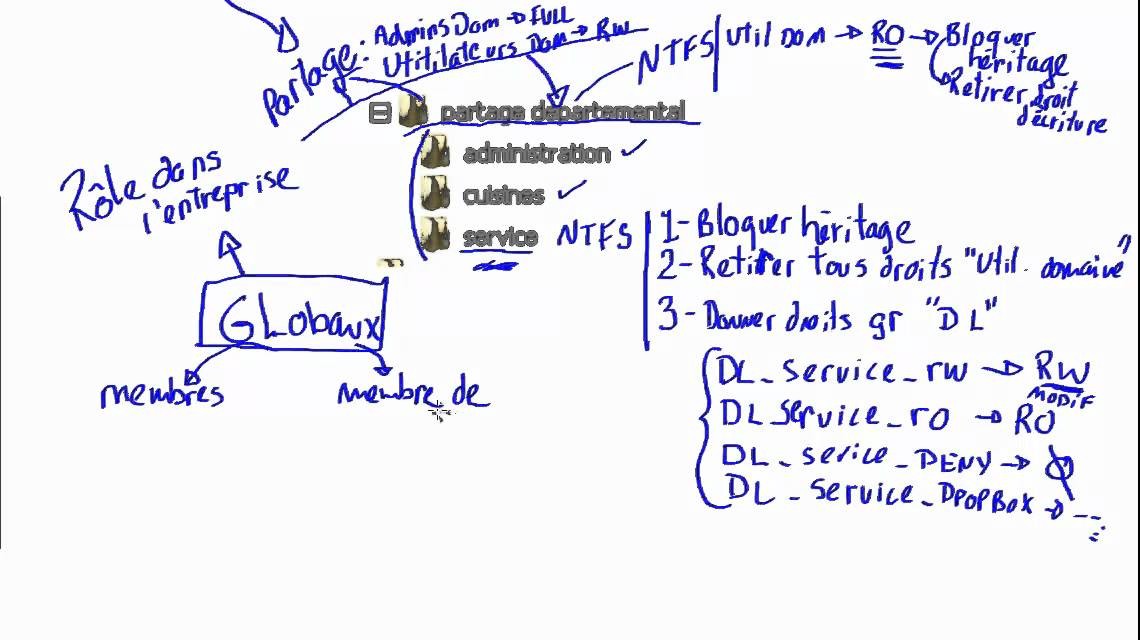 Partage: Admins Dom → FULL
Utitilateurs Dom → RW
NTFS
Util Dom → RO → Bloquer héritage
Retirer droit d'écriture
partage départemental
administration
cuisines
service
NTFS
1- Bloquer héritage
2- Retirer tous droits "Util. domaine"
3- Donner droits gr "DL"
DL_service_rw → RW
MODIF
DL_service_ro → RO
DL_serice_DENY →
DL_service_DPOPBOX → ---
Rôle dans
l'entreprise
GLobaux
membres
membre de